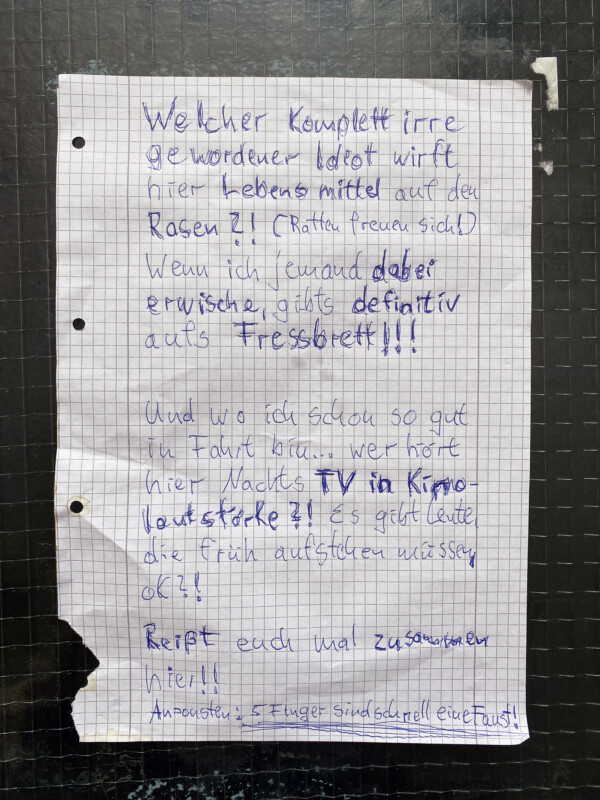 Welcher Komplett irre
gewordener Idiot wirft
hier Lebensmittel auf den
Rasen?! (Ratten freuen sich!)
Wenn ich jemand dabei
erwische, gibts definitiv
aufs Fressbrett!!!
Und wo ich schon so gut
in Fahrt bin... wer hört
hier Nachts TV in Kino-
lautstärke?! Es gibt Leute,
die früh aufstehen müssen,
OK?!
Reißt euch mal zusammen
hier!!
Ansonsten: 5 Finger sind schnell eine Faust!